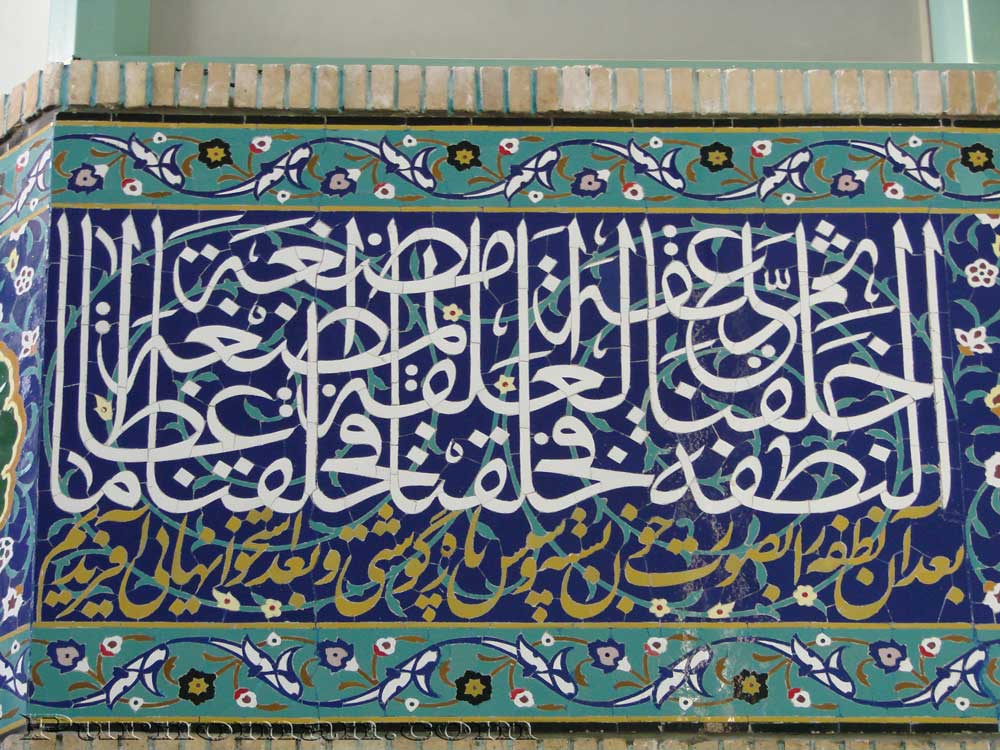 ثم خلقنا النطفة علقة فخلقنا العلقة مضغة فخلقنا المضغة عظاما
بعد آن نطفه را بصورت خون بسته و سپس پاره گوشتی و بعد استخوانهایی آفریدیم
Purnoman.com